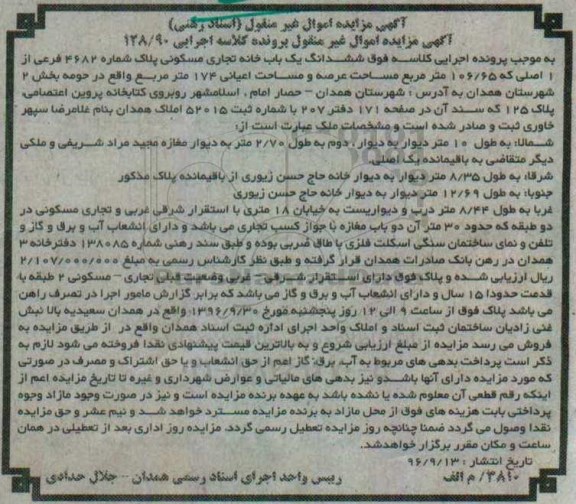 آگهی مزایده اموال غیر منقول (اسناد رهنی)
آگهی مزایده اموال غیر منقول پرونده کلاسه اجرایی ۱۲۸/۹۰
به موجب پرونده اجرایی کلاسه فوق ششدانگ یک باب خانه تجاری مسکونی پلاک شماره ۴۶۸۲ فرعی از
۱ اصلی که ۱۰۶/۶۵ متر مربع مساحت عرصه و مساحت اعیانی ۱۷۴ متر مربع واقع در حومه بخش ۲
شهرستان همدان به آدرس : شهرستان همدان – حصار امام ، اسلامشهر روبروی کتابخانه پروین اعتصامی،
پلاک ۱۲۵ که سند آن در صفحه ۱۷۱ دفتر ۲۰۷ با شماره ثبت ۵۲۰۱۵ املاک همدان بنام غلامرضا سپهر
خاوری ثبت و صادر شده است و مشخصات ملک عبارت است از:
شمالا: به طول ۱۰ متر دیوار به دیوار ، دوم به طول ۲/۷۰ متر به دیوار مغازه مجید مراد شریفی و ملکی
دیگر متقاضی به باقیمانده یک اصلی
شرقا: به طول ۸/۳۵ متر دیوار به دیوار خانه حاج حسن زیوری از باقیمانده پلاک مذکور
جنوبا: به طول ۱۲/۶۹ متر دیوار به دیوار خانه حاج حسن زیوری
غربا به طول ۸/۴۴ متر درب و دیواریست به خیابان ۱۸ متری با استقرار شرقی غربی و تجاری مسکونی در
دو طبقه که حدود ۳۰ متر آن دو باب مغازه با جواز کسب تجاری می باشد و دارای انشعاب آب و برق و گاز و
تلفن و نمای ساختمان سنگی اسکلت فلزی با طاق ضربی بوده و طبق سند رهنی شماره ۱۳۸۰۸۵ دفترخانه ۳
همدان در رهن بانک صادرات همدان قرار گرفته و طبق نظر کارشناس رسمی به مبلغ ۲/۱۰۷/۰۰۰/۰۰۰
ریال ارزیابی شده و پلاک فوق دارای استقرار شرقی – غربی وضعیت قبلی تجاری – مسکونی ۲ طبقه با
قدمت حدودا ۱۵ سال و دارای انشعاب آب و برق و گاز می باشد که برابر گزارش مامور اجرا در تصرف راهن
می باشد پلاک فوق از ساعت ۹ الی ۱۲ روز پنجشنبه مورخ ۱۳۹۶/۹/۳۰ واقع در همدان سعیدیه بالا نبش
غنی زادیان ساختمان ثبت اسناد و املاک واحد اجرای اداره ثبت اسناد همدان واقع در از طریق مزایده به
فروش می رسد مزایده از مبلغ ارزیابی شروع و به بالاترین قیمت پیشنهادی نقدا فروخته می شود لازم به
ذکر است پرداخت بدهی های مربوط به آب، برق، گاز اعم از حق انشعاب و یا حق اشتراک و مصرف در صورتی
که مورد مزایده دارای آنها باشدو نیز بدهی های مالیاتی و عوارض شهرداری و غیره تا تاریخ مزایده اعم از
اینکه رقم قطعی آن معلوم شده یا نشده باشد به عهده برنده مزایده است و نیز در صورت وجود مازاد وجوه
پرداختی بابت هزینه های فوق از محل مازاد به برنده مزایده مسترد خواهد شد و نیم عشر و حق مزایده
نقدا وصول می گردد ضمنا چنانچه روز مزایده تعطیل رسمی گردد، مزایده روز اداری بعد از تعطیلی در همان
ساعت و مکان مقرر برگزار خواهدشد.
تاریخ انتشار : ۹۶/۹/۱۳
۳۸۱۰/ م الف رییس واحد اجرای اسناد رسمی همدان – جلال حدادی